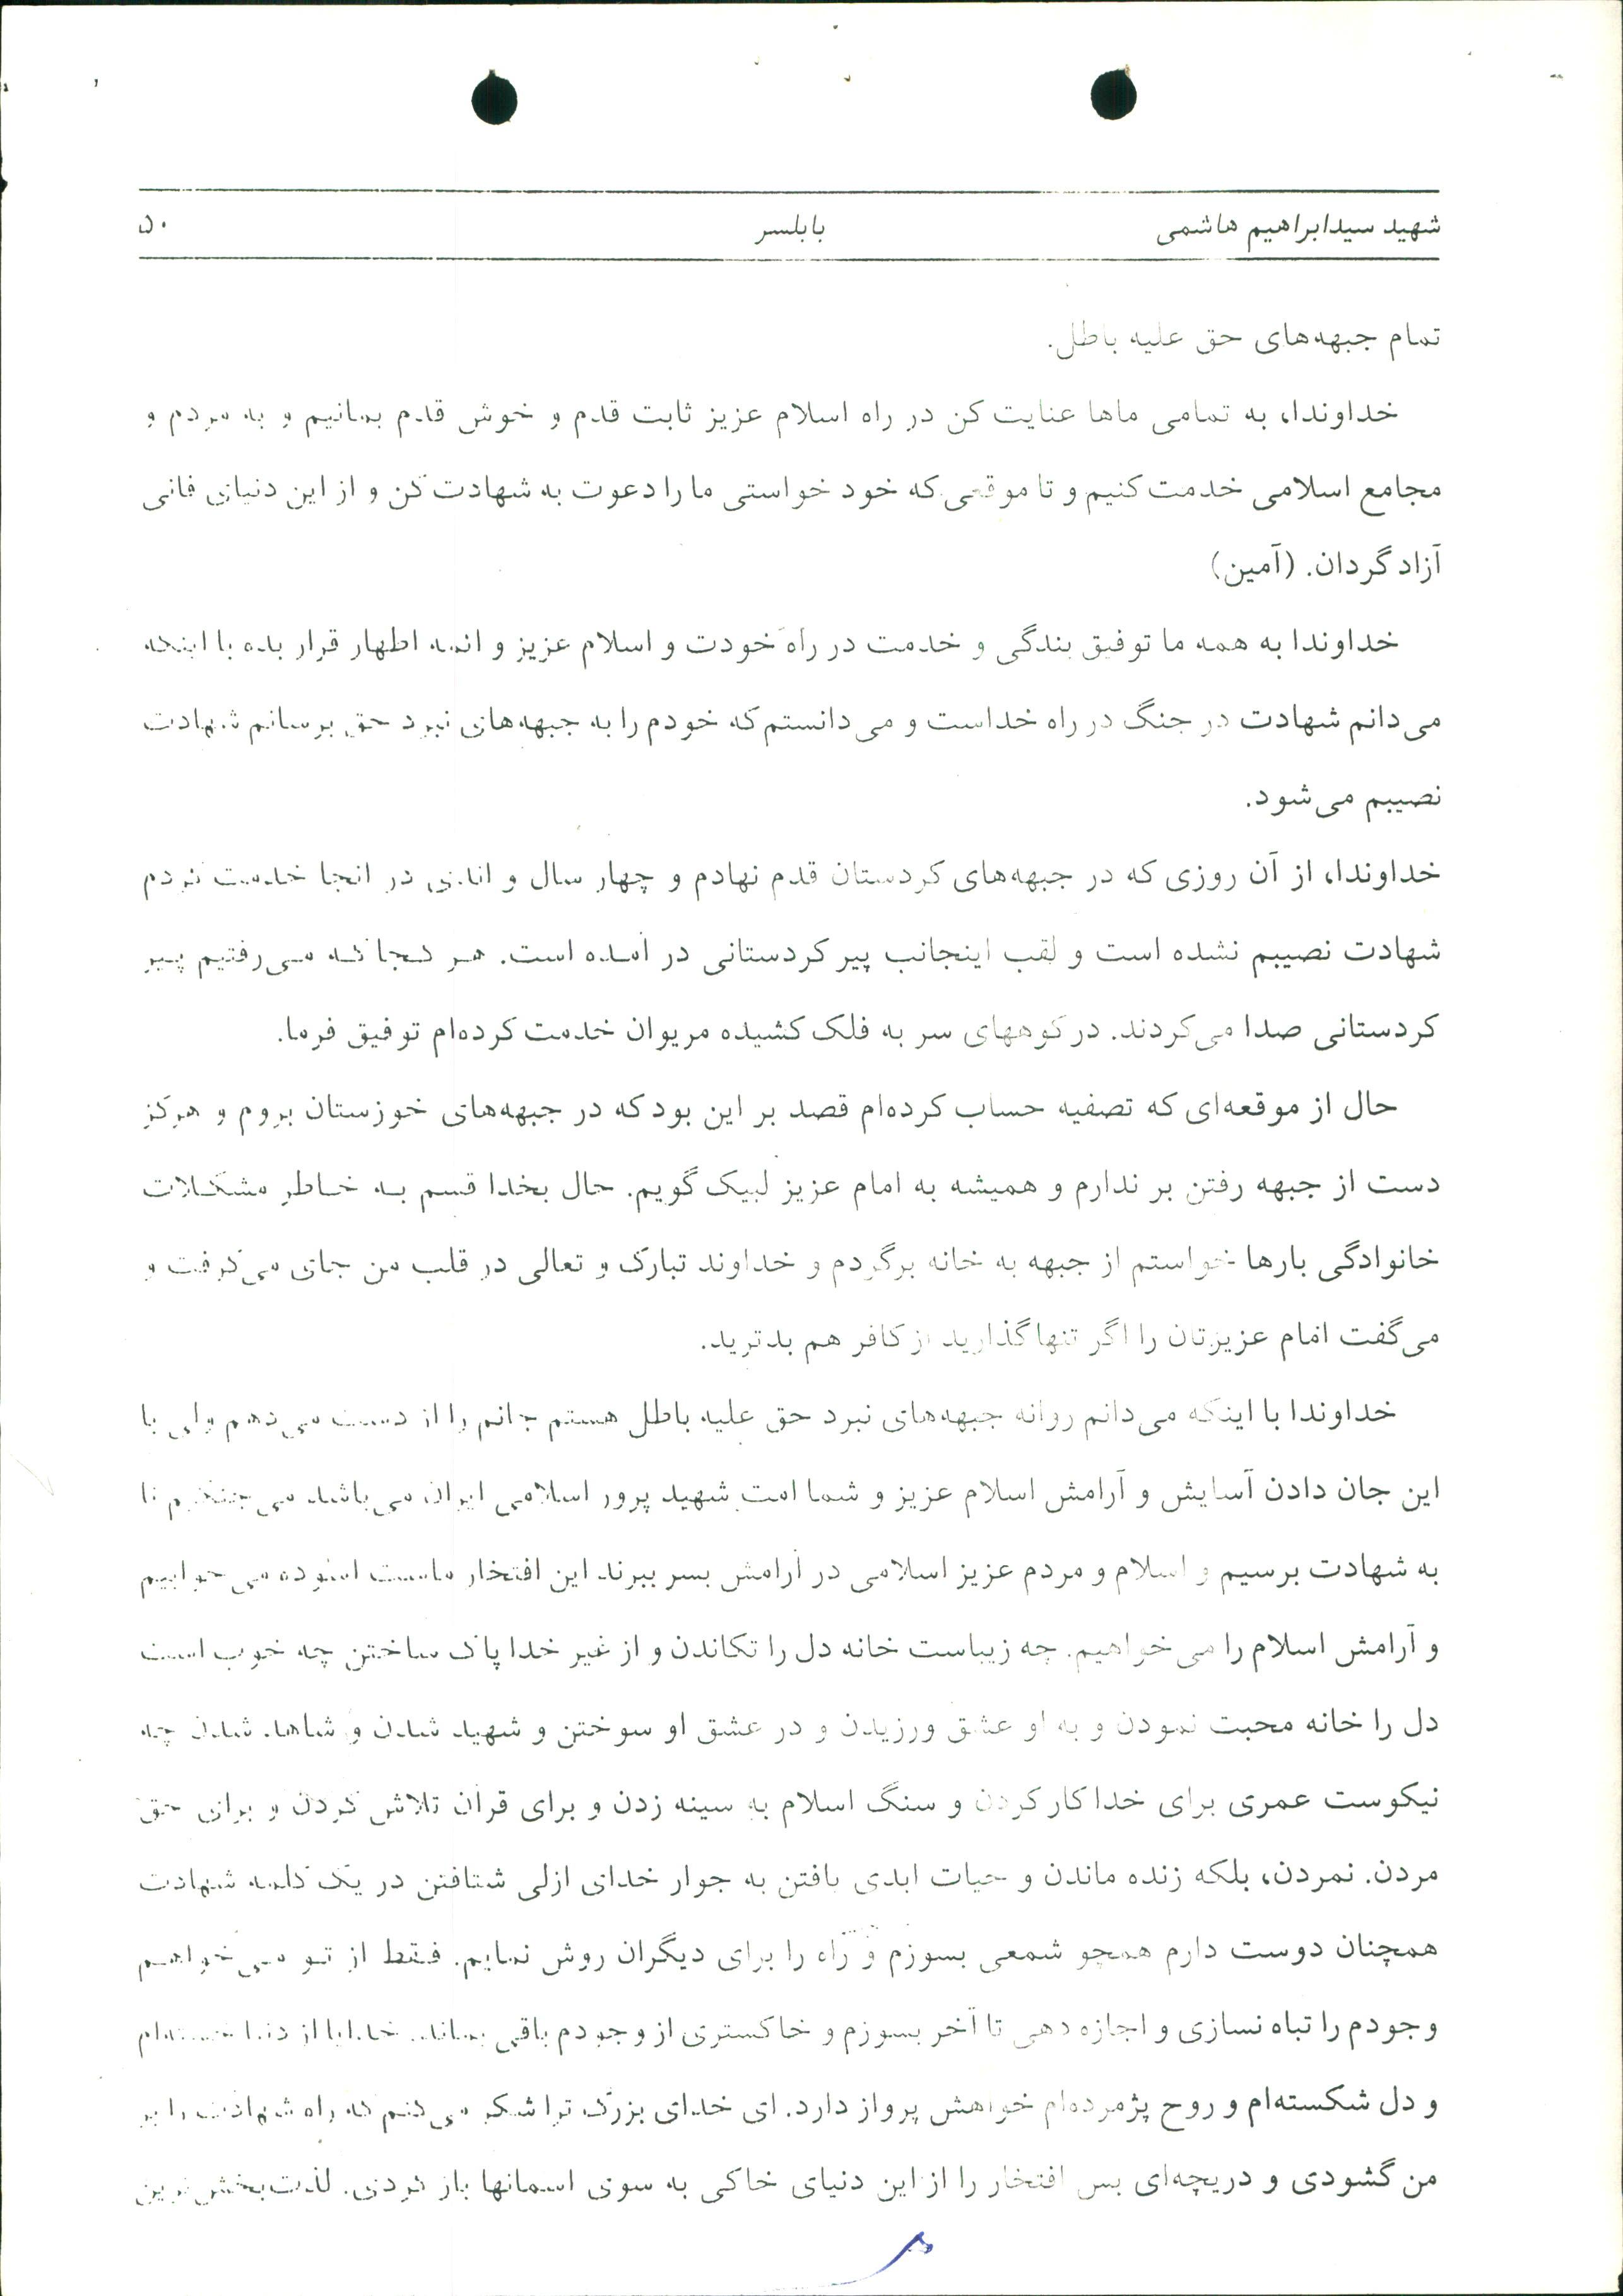 شهید سیدابراهیم هاشمی بابلسر ۵۰
تمام جبهه‌های حق علیه باطل.
خداوندا، به تمامی ماها عنایت کن در راه اسلام عزیز ثابت قدم و خوش قدم بمانیم و به مردم و
مجامع اسلامی خدمت کنیم و تا موقعی که خود خواستی ما را دعوت به شهادت کن و از این دنیای فانی
آزاد گردان. (آمین)
خداوندا به همه ما توفیق بندگی و خدمت در راه خودت و اسلام عزیز و ائمه اطهار قرار بده با اینکه
می‌دانم شهادت در جنگ در راه خداست و می‌دانستم که خودم را به جبهه‌های نبرد حق برسانم شهادت
نصیبم می‌شود.
خداوندا، از آن روزی که در جبهه‌های کردستان قدم نهادم و چهار سال و اندی در آنجا خدمت کردم
شهادت نصیبم نشده است و لقب اینجانب پیر کردستانی در آمده است. هر کجا که می‌رفتیم پیر
کردستانی صدا می‌کردند. در کوههای سر به فلک کشیده مریوان خدمت کرده‌ام توفیق فرما.
حال از موقعه‌ای که تصفیه حساب کرده‌ام قصد بر این بود که در جبهه‌های خوزستان بروم و هرگز
دست از جبهه رفتن بر ندارم و همیشه به امام عزیز لبیک گویم. حال بخدا قسم به خاطر مشکلات
خانوادگی بارها خواستم از جبهه به خانه برگردم و خداوند تبارک و تعالی در قلب من جای می‌گرفت و
می‌گفت امام عزیزتان را اگر تنها گذارید از کافر هم بدترید.
خداوندا با اینکه می‌دانم روانه جبهه‌های نبرد حق علیه باطل هستم جانم را از دست می‌دهم ولی با
این جان دادن آسایش و آرامش اسلام عزیز و شما امت شهید پرور اسلامی ایران می‌باشد می‌جنگیم تا
به شهادت برسیم و اسلام و مردم عزیز اسلامی در آرامش بسر ببرند این افتخار ماست آسوده می‌خوابیم
و آرامش اسلام را می‌خواهیم. چه زیباست خانه دل را تکاندن و از غیر خدا پاک ساختن چه خوب است
دل را خانه محبت نمودن و به او عشق ورزیدن و در عشق او سوختن و شهید شدن و شاهد شدن چه
نیکوست عمری برای خدا کار کردن و سنگ اسلام به سینه زدن و برای قرآن تلاش کردن و برای حق
مردن. نمردن، بلکه زنده ماندن و حیات ابدی یافتن به جوار خدای ازلی شتافتن در یک کلمه شهادت
همچنان دوست دارم همچو شمعی بسوزم و راه را برای دیگران روش نمایم. فقط از تو می‌خواهم
وجودم را تباه نسازی و اجازه دهی تا آخر بسوزم و خاکستری از وجودم باقی بماند. خدایا از دنیا خسته‌ام
و دل شکسته‌ام و روح پژمرده‌ام خواهش پرواز دارد. ای خدای بزرگ ترا شکر می‌کنم که راه شهادت را بر
من گشودی و دریچه‌ای بس افتخار را از این دنیای خاکی به سوی آسمانها باز کردی. لذت‌بخش‌ترین